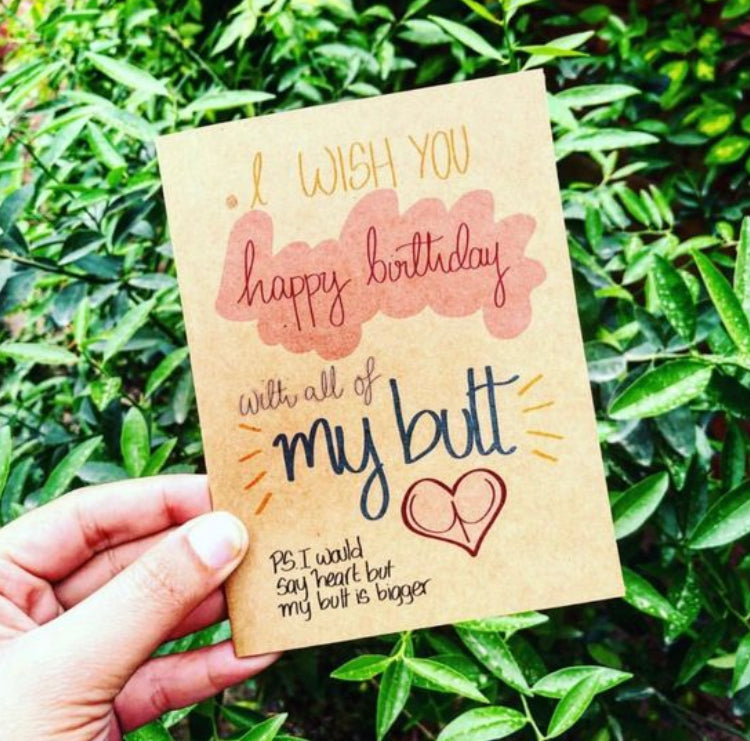 I WISH YOU
happy birthday
with all of
my butt
PS. I would
say heart but
my butt is bigger